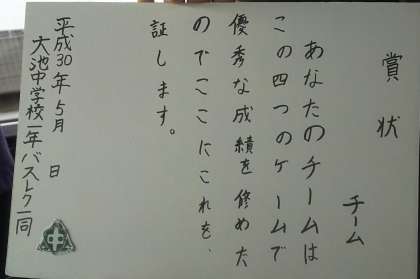 賞状
チーム
あなたのチームは
この四つのゲームで
優秀な成績を修めた
のでここにこれを、
証します。
平成30年5月 日
大池中学校一年バストク一同
中